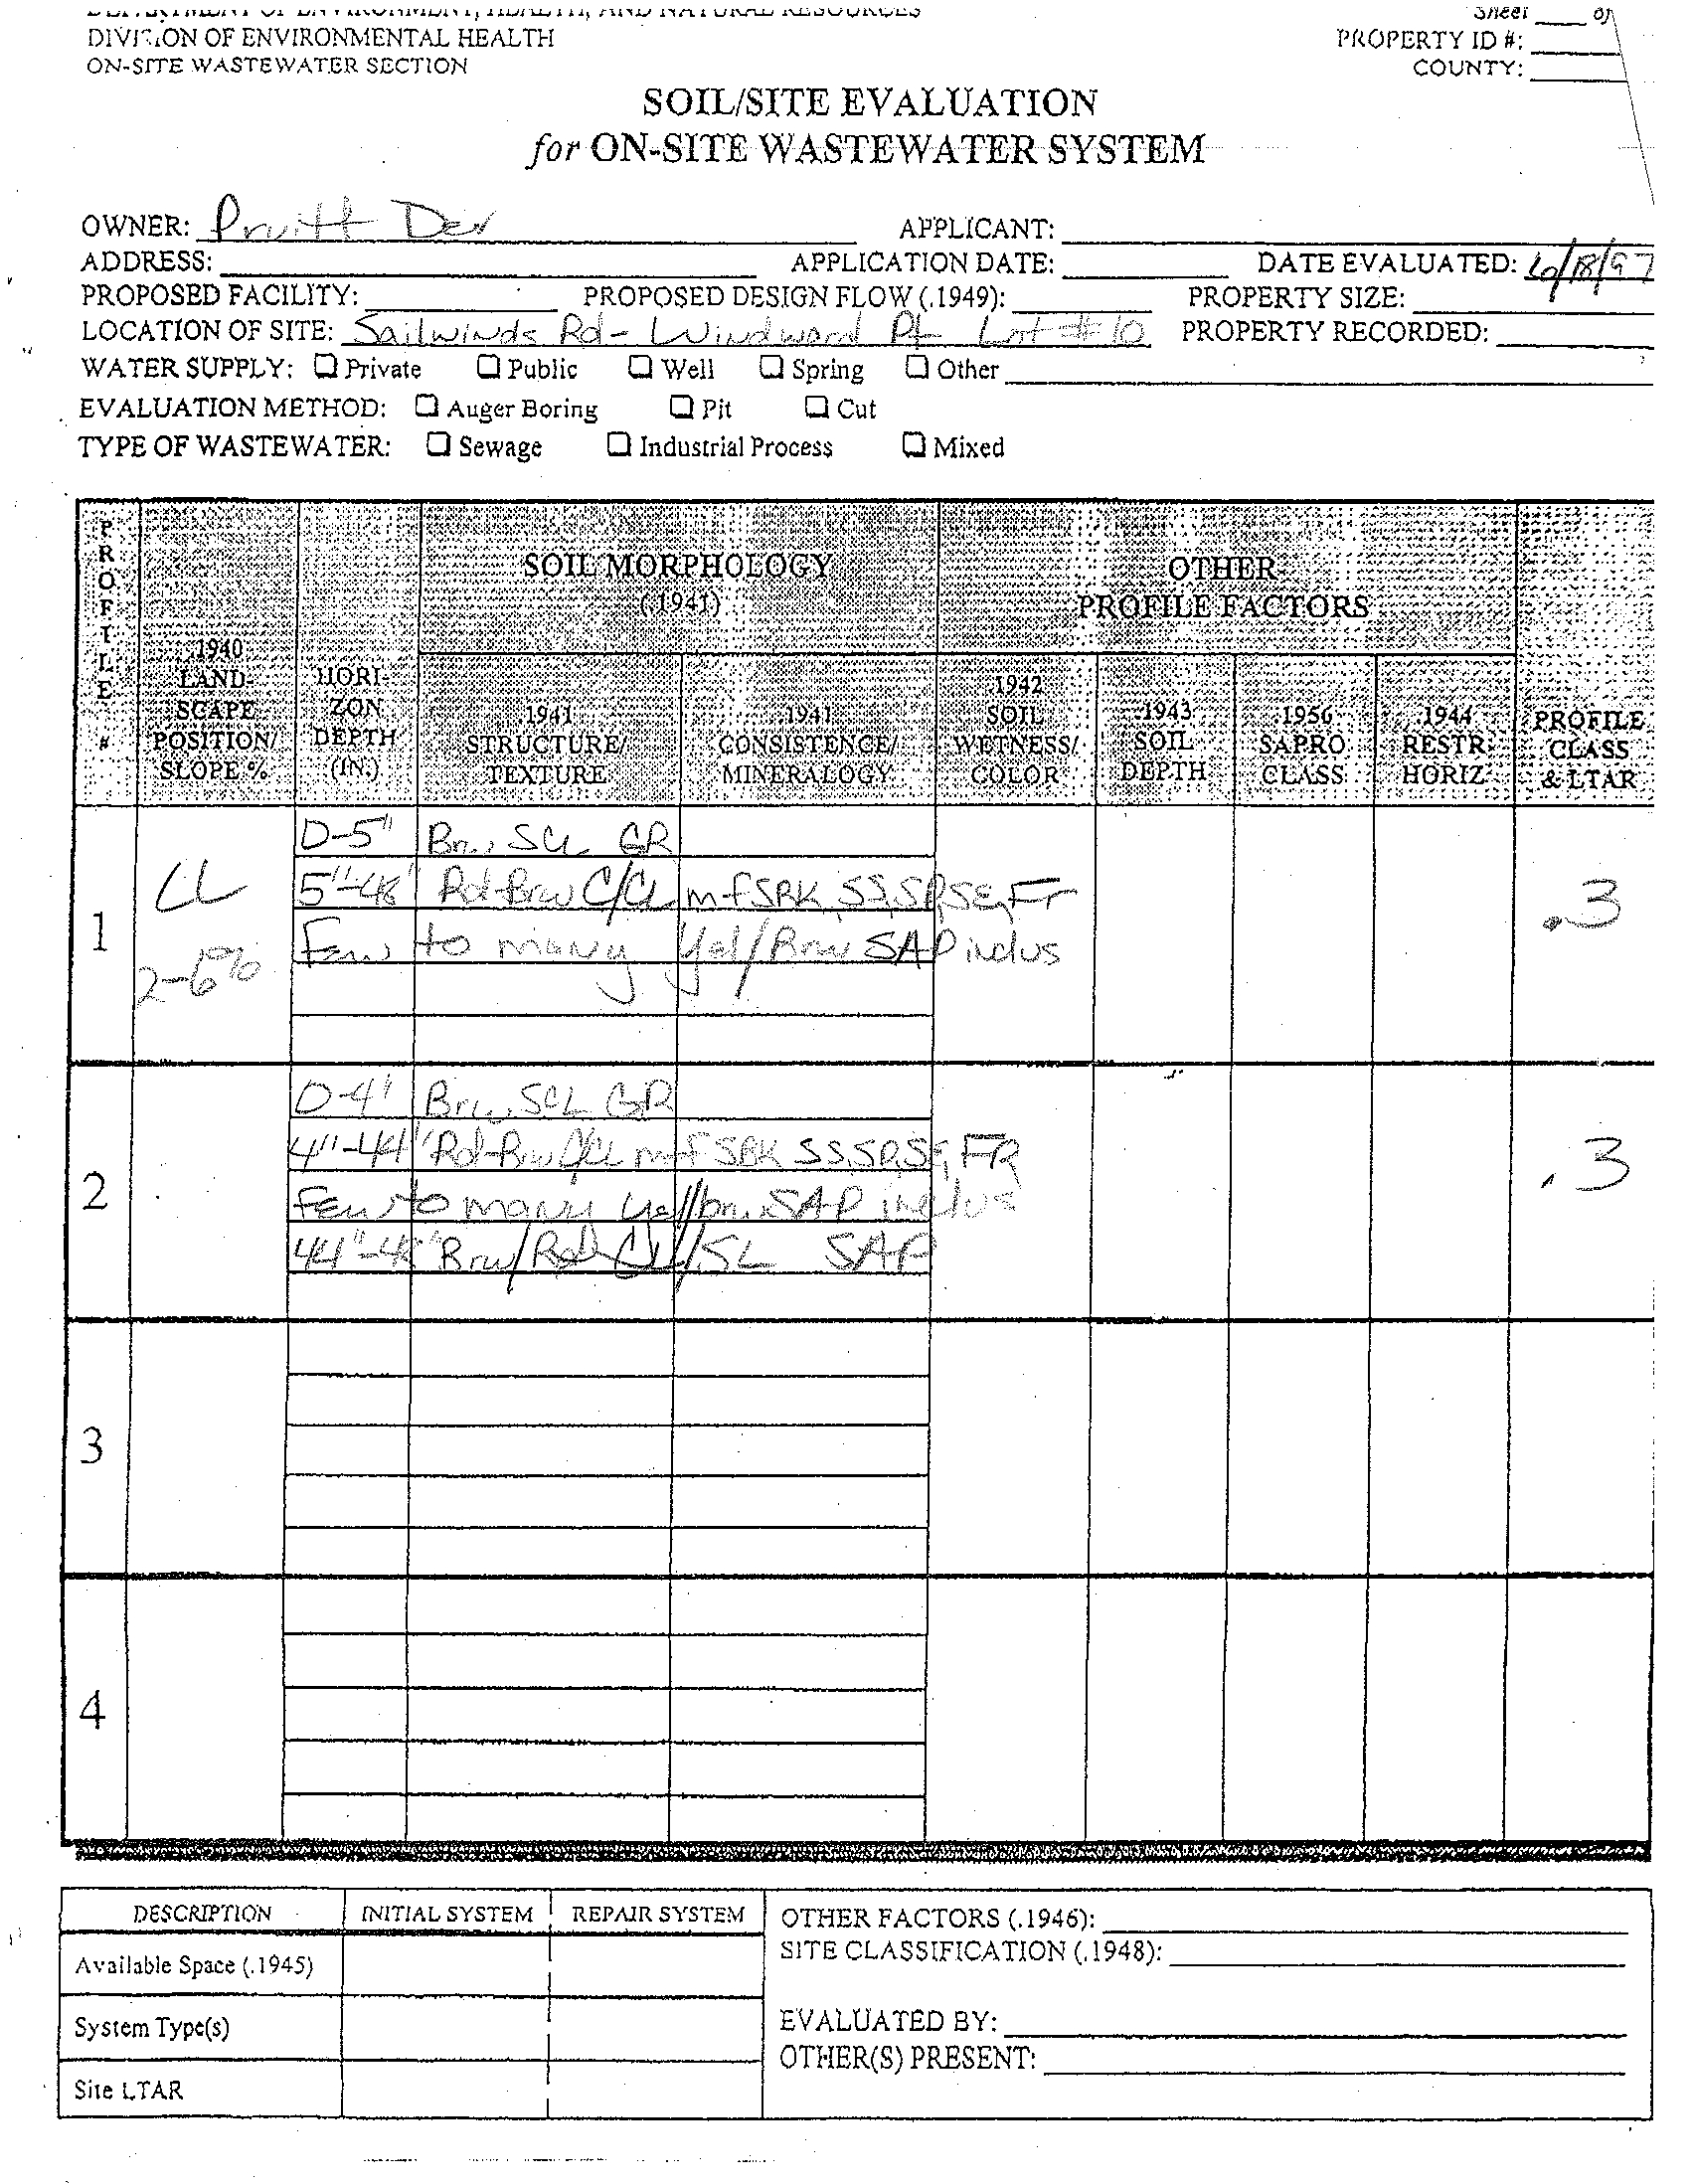 DEPARTMENT OF ENVIRONMENT, HEALTH, AND NATURAL RESOURCES
Sheet ____ of
DIVISION OF ENVIRONMENTAL HEALTH
PROPERTY ID #:
ON-SITE WASTEWATER SECTION
COUNTY:
SOIL/SITE EVALUATION
for ON-SITE WASTEWATER SYSTEM
OWNER: Pruitt Dev APPLICANT:
ADDRESS: APPLICATION DATE: DATE EVALUATED: 6/18/97
PROPOSED FACILITY: PROPOSED DESIGN FLOW (.1949): PROPERTY SIZE:
LOCATION OF SITE: Sailwinds Rd - Windward Pt Lot #10 PROPERTY RECORDED:
WATER SUPPLY: ❑ Private ❑ Public ❑ Well ❑ Spring ❑ Other
EVALUATION METHOD: ❑ Auger Boring ❑ Pit ❑ Cut
TYPE OF WASTEWATER: ❑ Sewage ❑ Industrial Process ❑ Mixed
PROFILE #
.1940 LAND-SCAPE POSITION/ SLOPE %
HORI-ZON DEPTH (IN.)
SOIL MORPHOLOGY
(.1941)
.1941 STRUCTURE/ TEXTURE
.1941 CONSISTENCE/ MINERALOGY
OTHER
PROFILE FACTORS
.1942 SOIL WETNESS/ COLOR
.1943 SOIL DEPTH
.1956 SAPRO CLASS
.1944 RESTR HORIZ
PROFILE CLASS & LTAR
1
LL
2-6%
0-5" Brw SCL GR
5"-48" Rd-Brw C/CL m-f SBK, SS, SP, SE, Fr
Few to many Yel/Brw SAP inclus
.3
2
0-4" Brw SCL GR
4"-44" Rd-Brw C/CL m-f SBK SS, SP, SE, FR
Few to many yel/brw SAP inclus
44"-48" Brw/Rd CL/SL SAP
.3
3
4
DESCRIPTION INITIAL SYSTEM REPAIR SYSTEM
Available Space (.1945)
System Type(s)
Site LTAR
OTHER FACTORS (.1946):
SITE CLASSIFICATION (.1948):
EVALUATED BY:
OTHER(S) PRESENT: